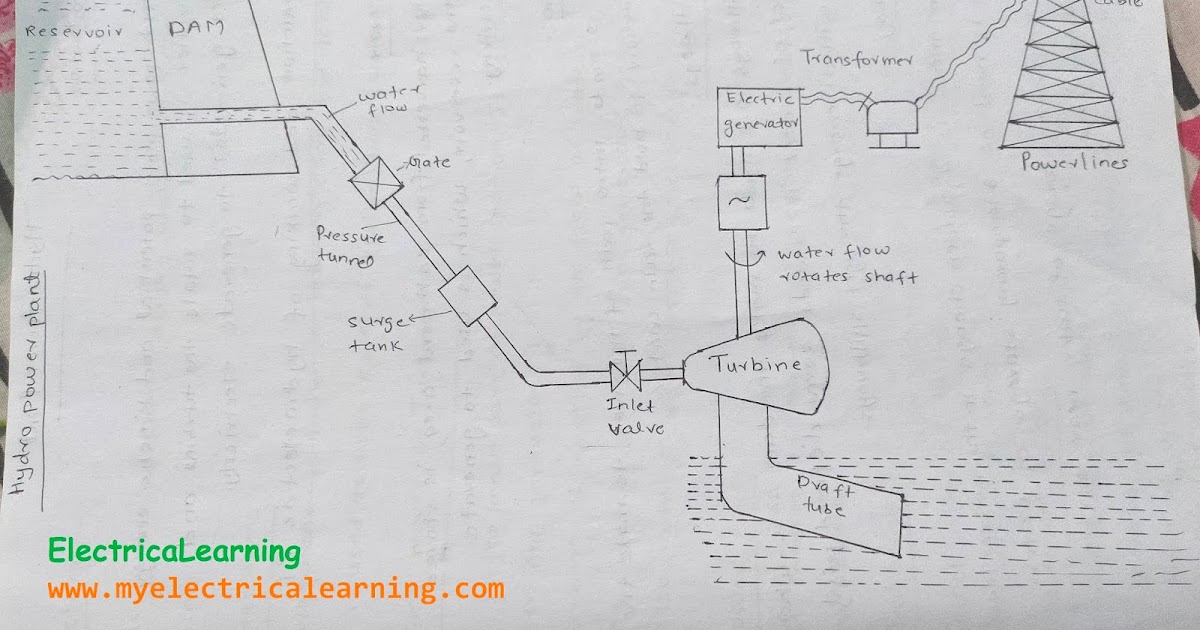 Reservoir
DAM
water
flow
Gate
Pressure
tunnel
surge
tank
Inlet
valve
Turbine
Draft
tube
water flow
rotates shaft
~
Electric
generator
Transformer
cable
Powerlines
Hydro power plant
ElectricaLearning
www.myelectricalearning.com